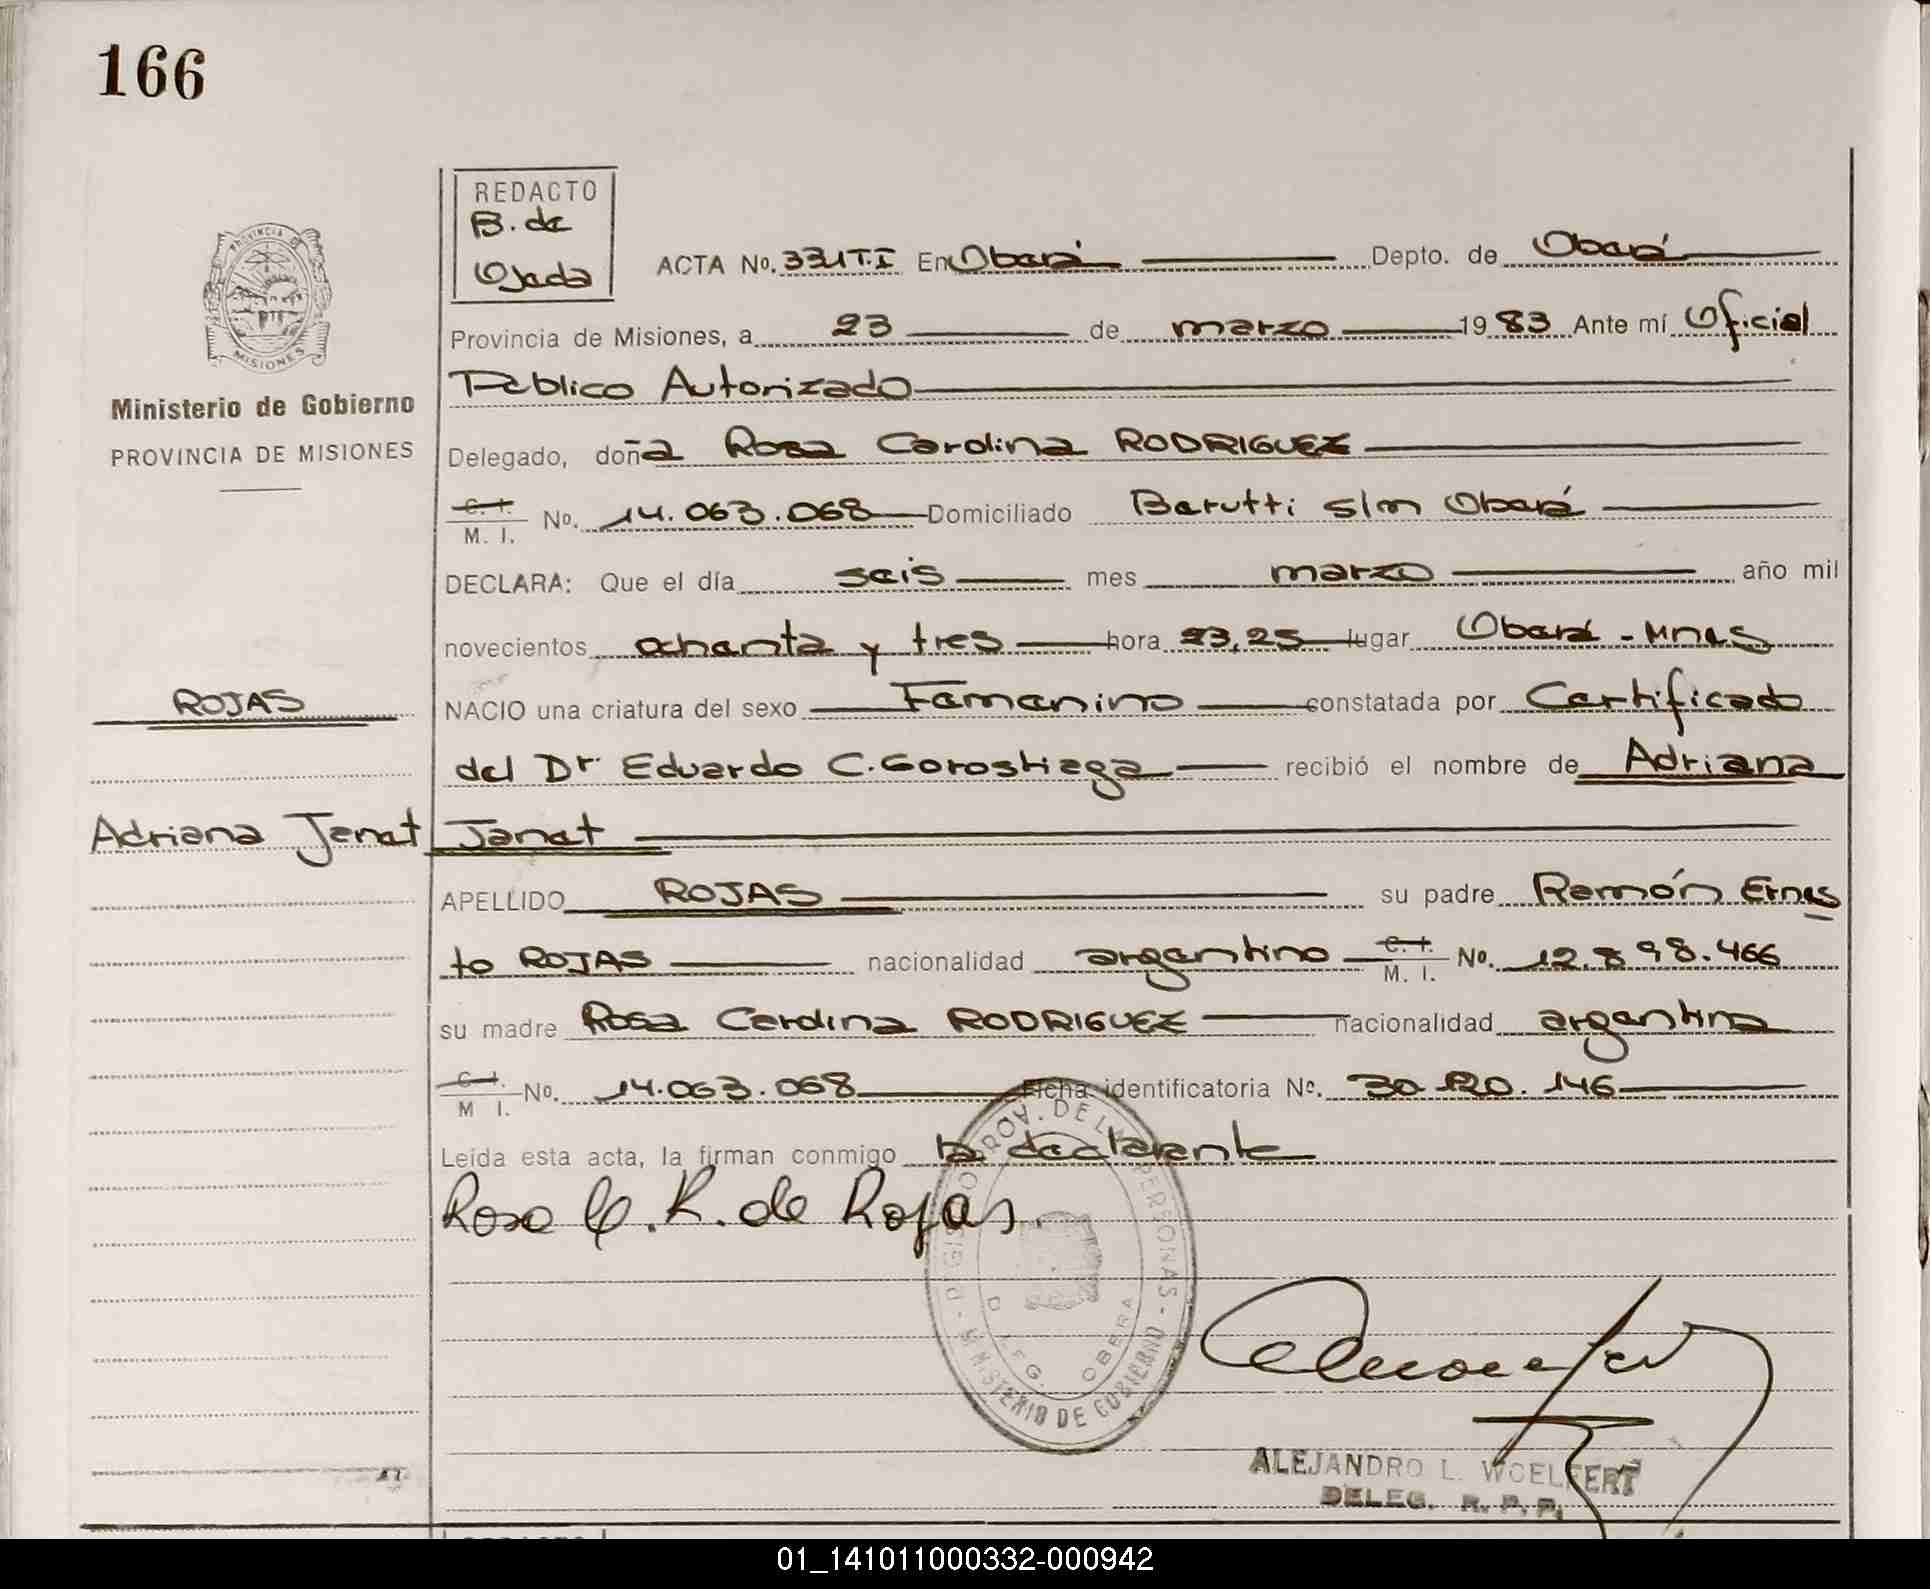 166
REDACTO
B. de
Ojeda
PROVINCIA DE
MISIONES
Ministerio de Gobierno
PROVINCIA DE MISIONES
ACTA No. 331 T.I En Oberá Depto. de Oberá
Provincia de Misiones, a 23 de marzo 1983 Ante mí Oficial
Público Autorizado
Delegado, doña Rosa Carolina RODRIGUEZ
C. I. M. I. No. 14.063.068 Domiciliado Berutti s/n Oberá
DECLARA: Que el día seis mes marzo año mil
novecientos ochenta y tres hora 23,25 lugar Oberá - Mnes
ROJAS
NACIO una criatura del sexo Femenino constatada por Certificado
del Dr. Eduardo C. Gorostiaga recibió el nombre de Adriana
Adriana Janet
Janet
APELLIDO ROJAS su padre Ramón Ernes
to ROJAS nacionalidad argentino C. I. M. I. No. 12.898.466
su madre Rosa Carolina RODRIGUEZ nacionalidad argentina
C. I. M I. No. 14.063.068 Ficha identificatoria No. 30.120.146
Leída esta acta, la firman conmigo la declarante
Rosa C. R. de Rojas.
PROV. DE LAS PERSONAS - MINISTERIO DE GOBIERNO
OBERA
ALEJANDRO L. WOELFERT
DELEG. R. P. P.
01_141011000332-000942